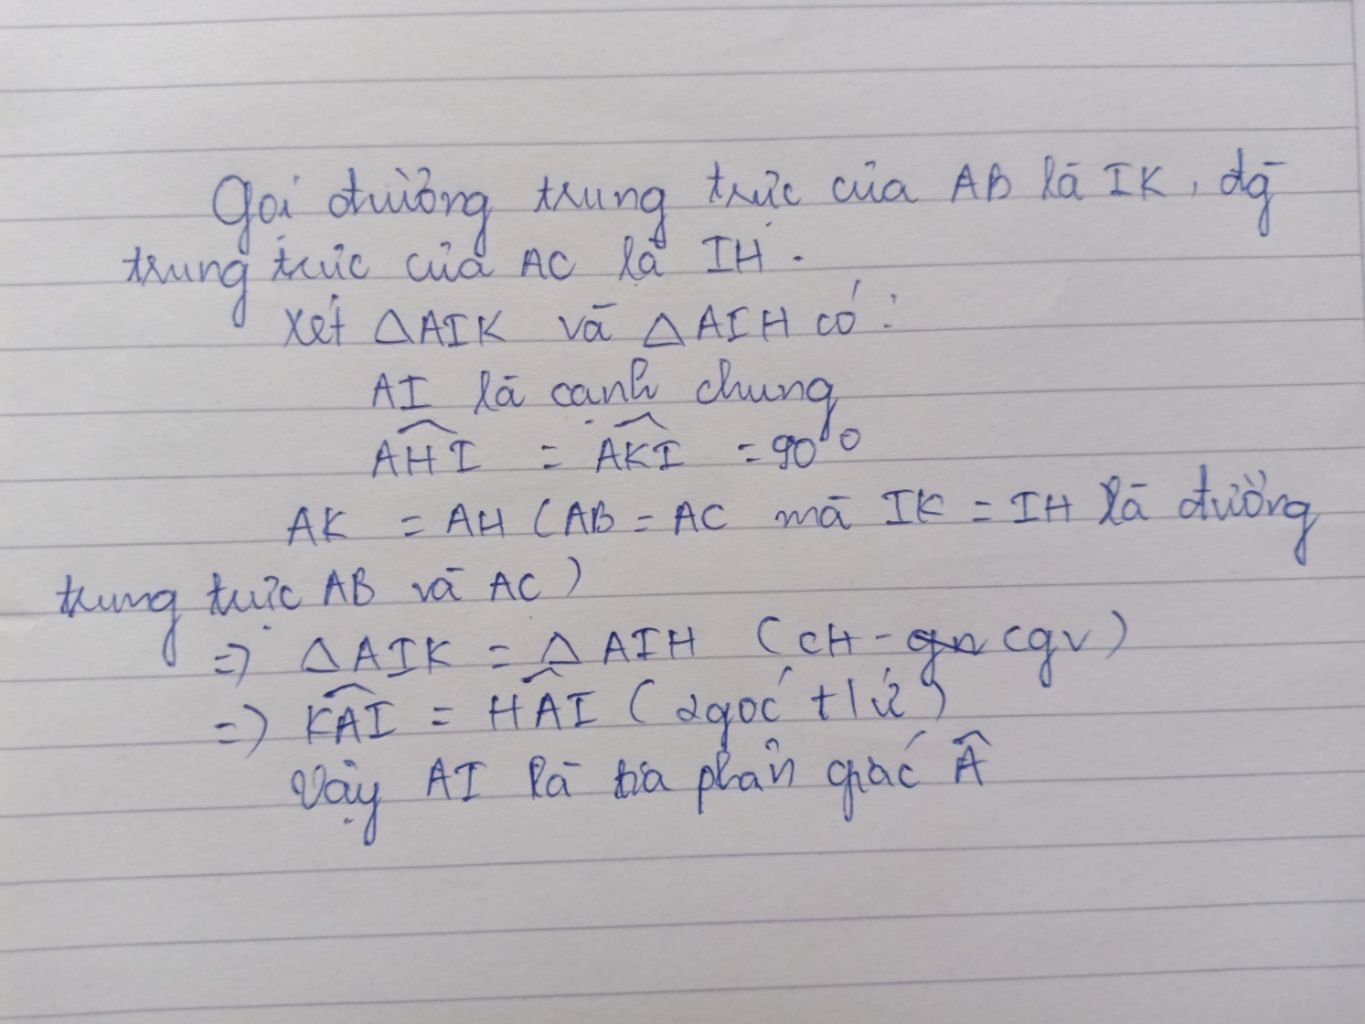 Gọi đường trung trực của AB là IK, đg
trung trực của AC là IH.
Xét △AIK và △AIH có:
AI là cạnh chung
$\widehat{AHI}$ = $\widehat{AKI}$ = 90°
AK = AH (AB = AC mà IK = IH là đường
trung trực AB và AC)
=> △AIK = △AIH (CH - cgv)
=> $\widehat{KAI}$ = $\widehat{HAI}$ (2 góc t/ứ)
Vậy AI là tia phân giác $\widehat{A}$